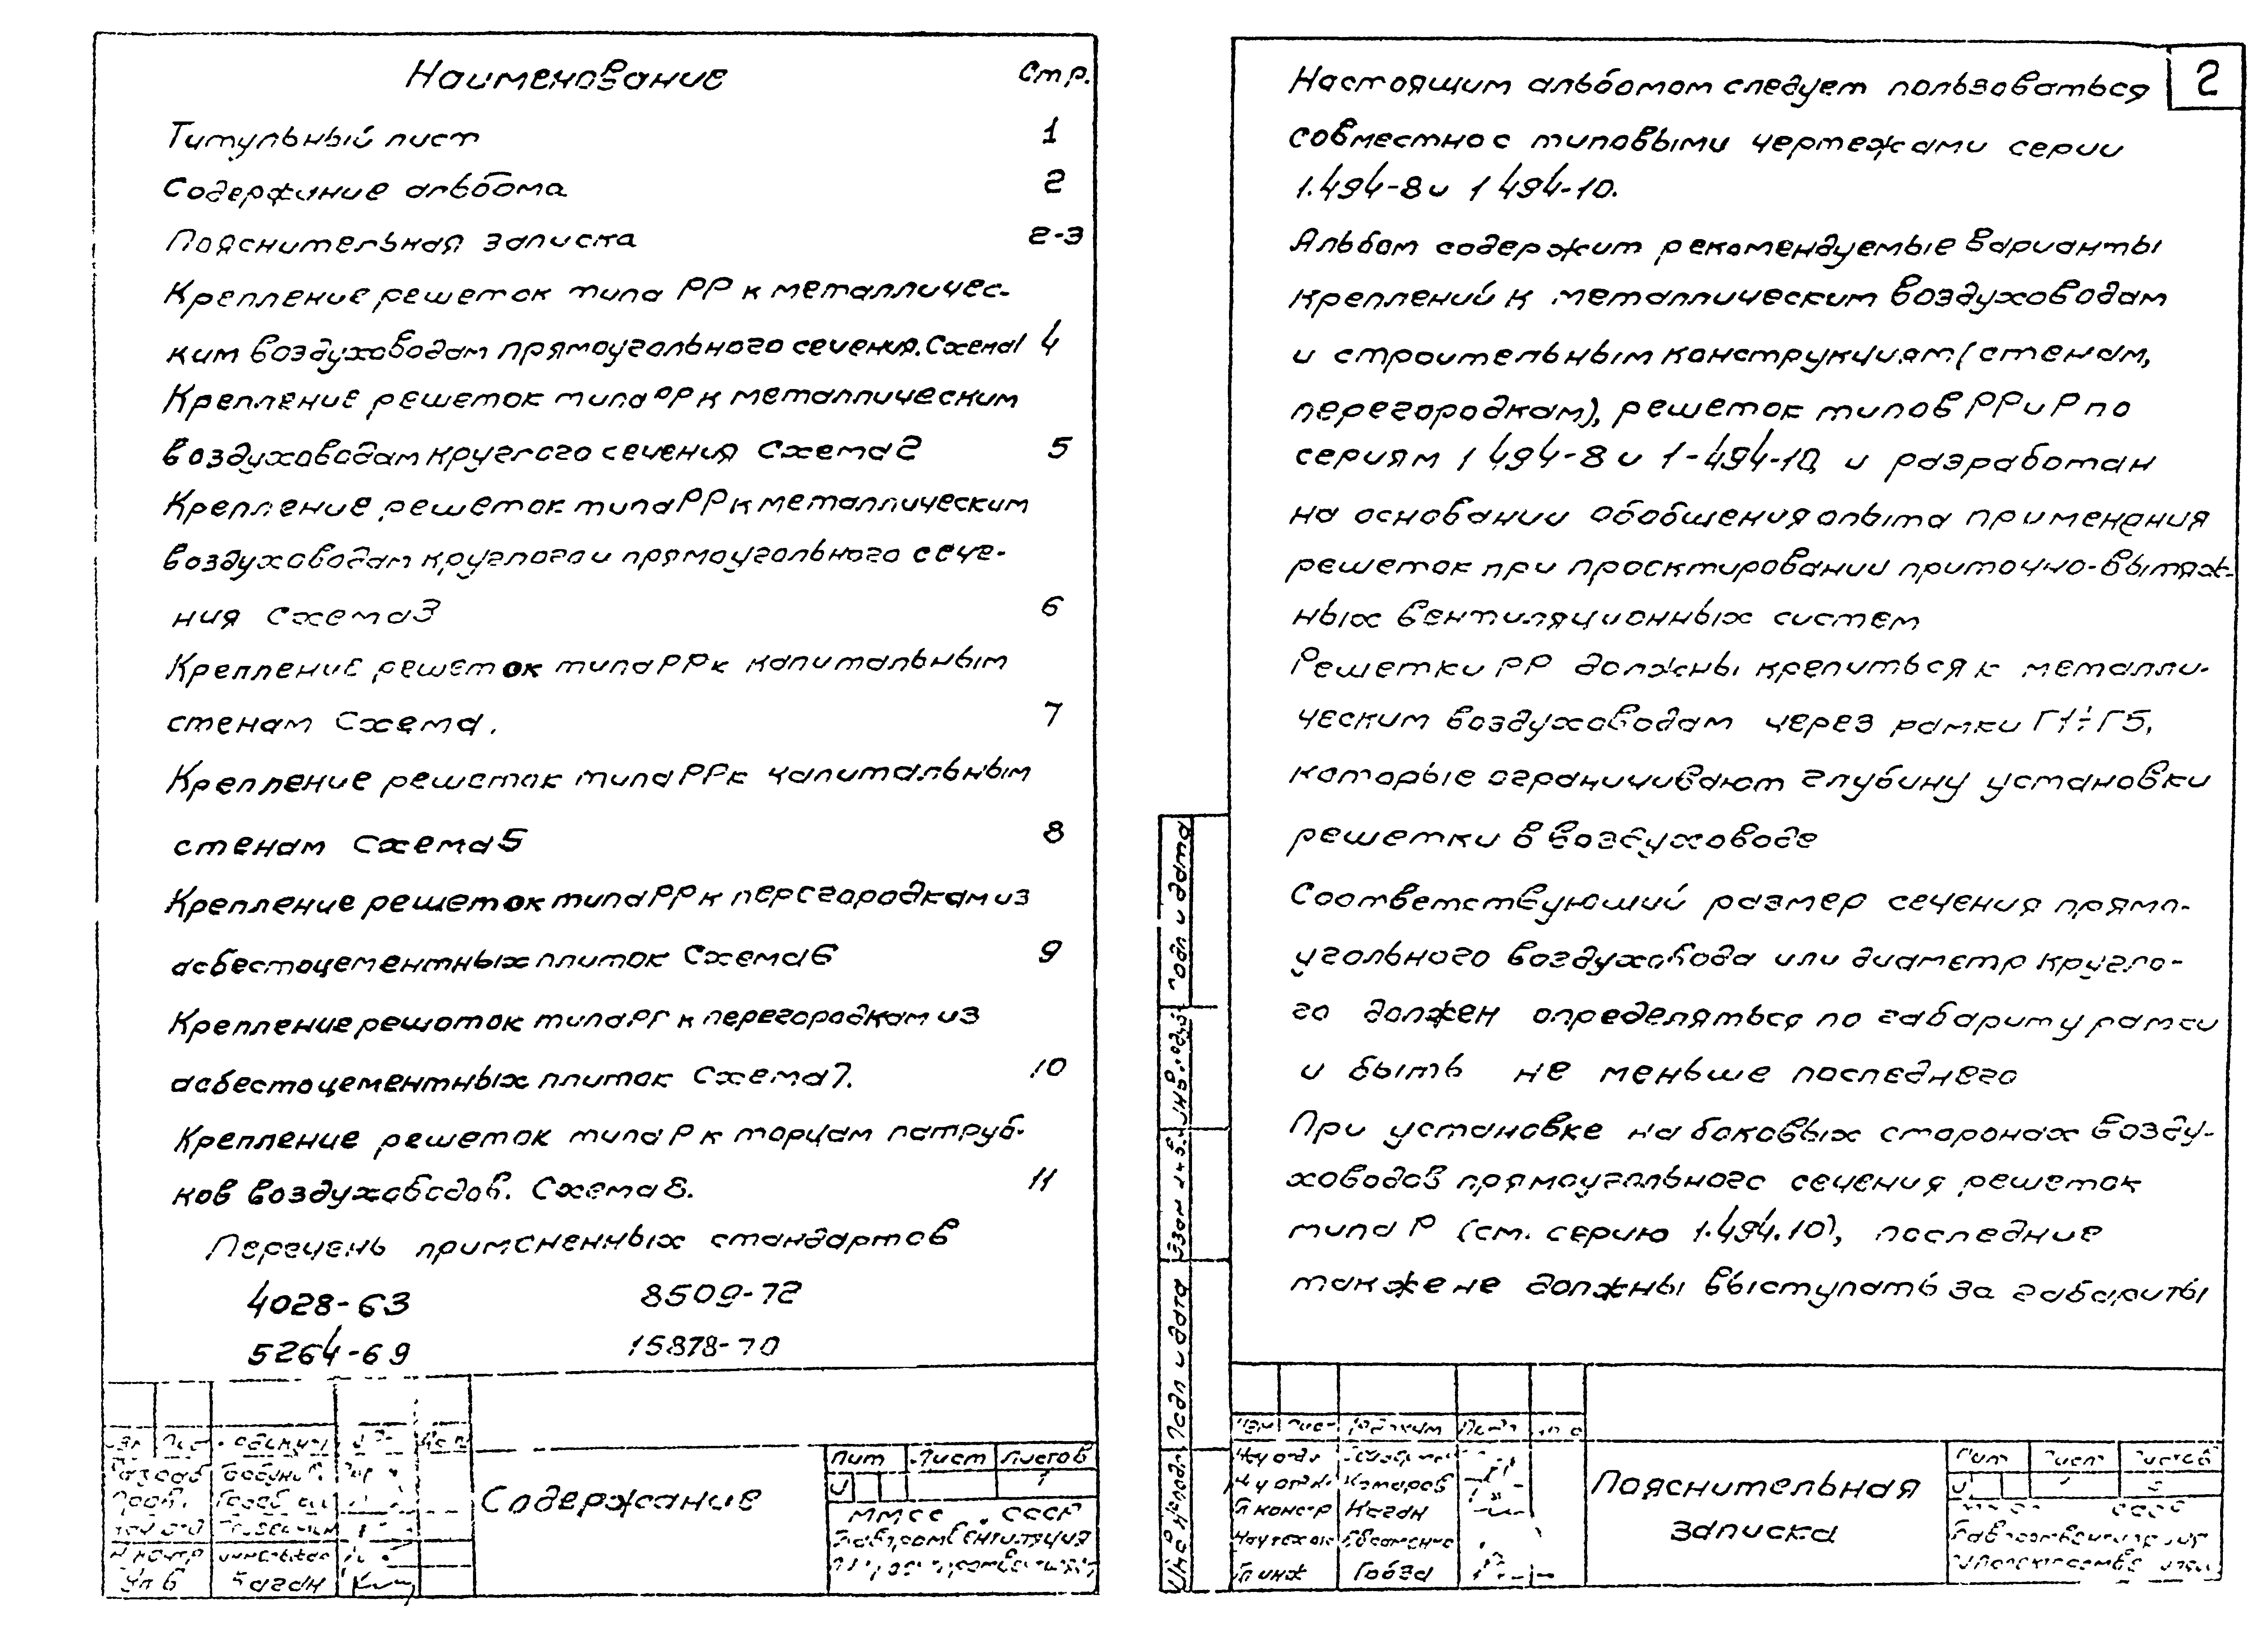 Наименование Стр.
Титульный лист 1
Содержание альбома 2
Пояснительная записка 2-3
Крепление решеток типа РР к металличес-
ким воздуховодам прямоугольного сечения. Схема 1 4
Крепление решеток типа РР к металлическим
воздуховодам круглого сечения Схема 2 5
Крепление решеток типа РР к металлическим
воздуховодам круглого и прямоугольного сече-
ния Схема 3 6
Крепление решеток типа РР к капитальным
стенам Схема . 7
Крепление решеток типа РР к капитальным
стенам Схема 5 8
Крепление решеток типа РР к перегородкам из
асбестоцементных плиток Схема 6 9
Крепление решоток типа РР к перегородкам из
асбестоцементных плиток Схема 7. 10
Крепление решеток типа Р к торцам патруб-
ков воздуховодов. Схема 8. 11
Перечень примененных стандартов
4028-63 8509-72
5264-69 15878-70
Содержание
Лит Лист Листов
И 1
ММСС СССР
Главпромвентиляция
Баган
2
Настоящим альбомом следует пользоваться
совместно с типовыми чертежами серии
1.494-8 и 1 494-10.
Альбом содержит рекомендуемые варианты
креплений к металлическим воздуховодам
и строительным конструкциям (стенам,
перегородкам), решеток типов РР и Р по
сериям 1 494-8 и 1-494-10, и разработан
на основании обобщения опыта применения
решеток при проектировании приточно-вытяж-
ных вентиляционных систем
Решетки РР должны крепиться к металли-
ческим воздуховодам через рамки Г1÷Г5,
которые ограничивают глубину установки
решетки в воздуховоде
Соответствующий размер сечения прямо-
угольного воздуховода или диаметр кругло-
го должен определяться по габариту рамки
и быть не меньше последнего
При установке на боковых сторонах возду-
ховодов прямоугольного сечения решеток
типа Р (см. серию 1.494.10), последние
также не должны выступать за габариты
Подп и дата
Взам инв.
Подп и дата
Инв № подл
Пояснительная
записка
Лит Лист Листов
Комаров
Гл констр Каган
Гл инж Гобза